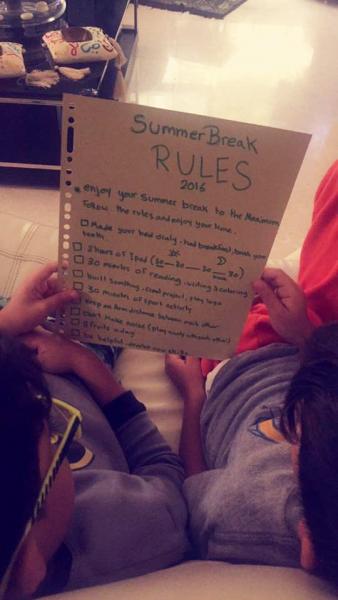 Summer Break
RULES
2016
enjoy your summer break to the Maximum
Follow the rules and enjoy your time.
Made your bed daily - had breakfast, brush your
teeth
2 hours of Ipad
20 minutes of reading, writing & coloring
built something, small project, play lego
30 minutes of sport activity
keep an Arm distance between each other
don't Make Noise (play nicely with each other)
2 fruits a day
be helpful